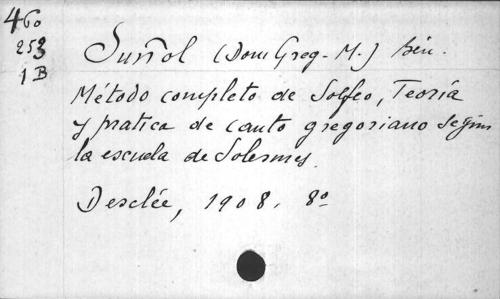 460
253
1 B
Suñol (Dom Greg. M.) bén.
Método completo de Solfeo, Teoría
y pratica de canto gregoriano segun
la escuela de Solesmes.
Desclée, 1908. 8º